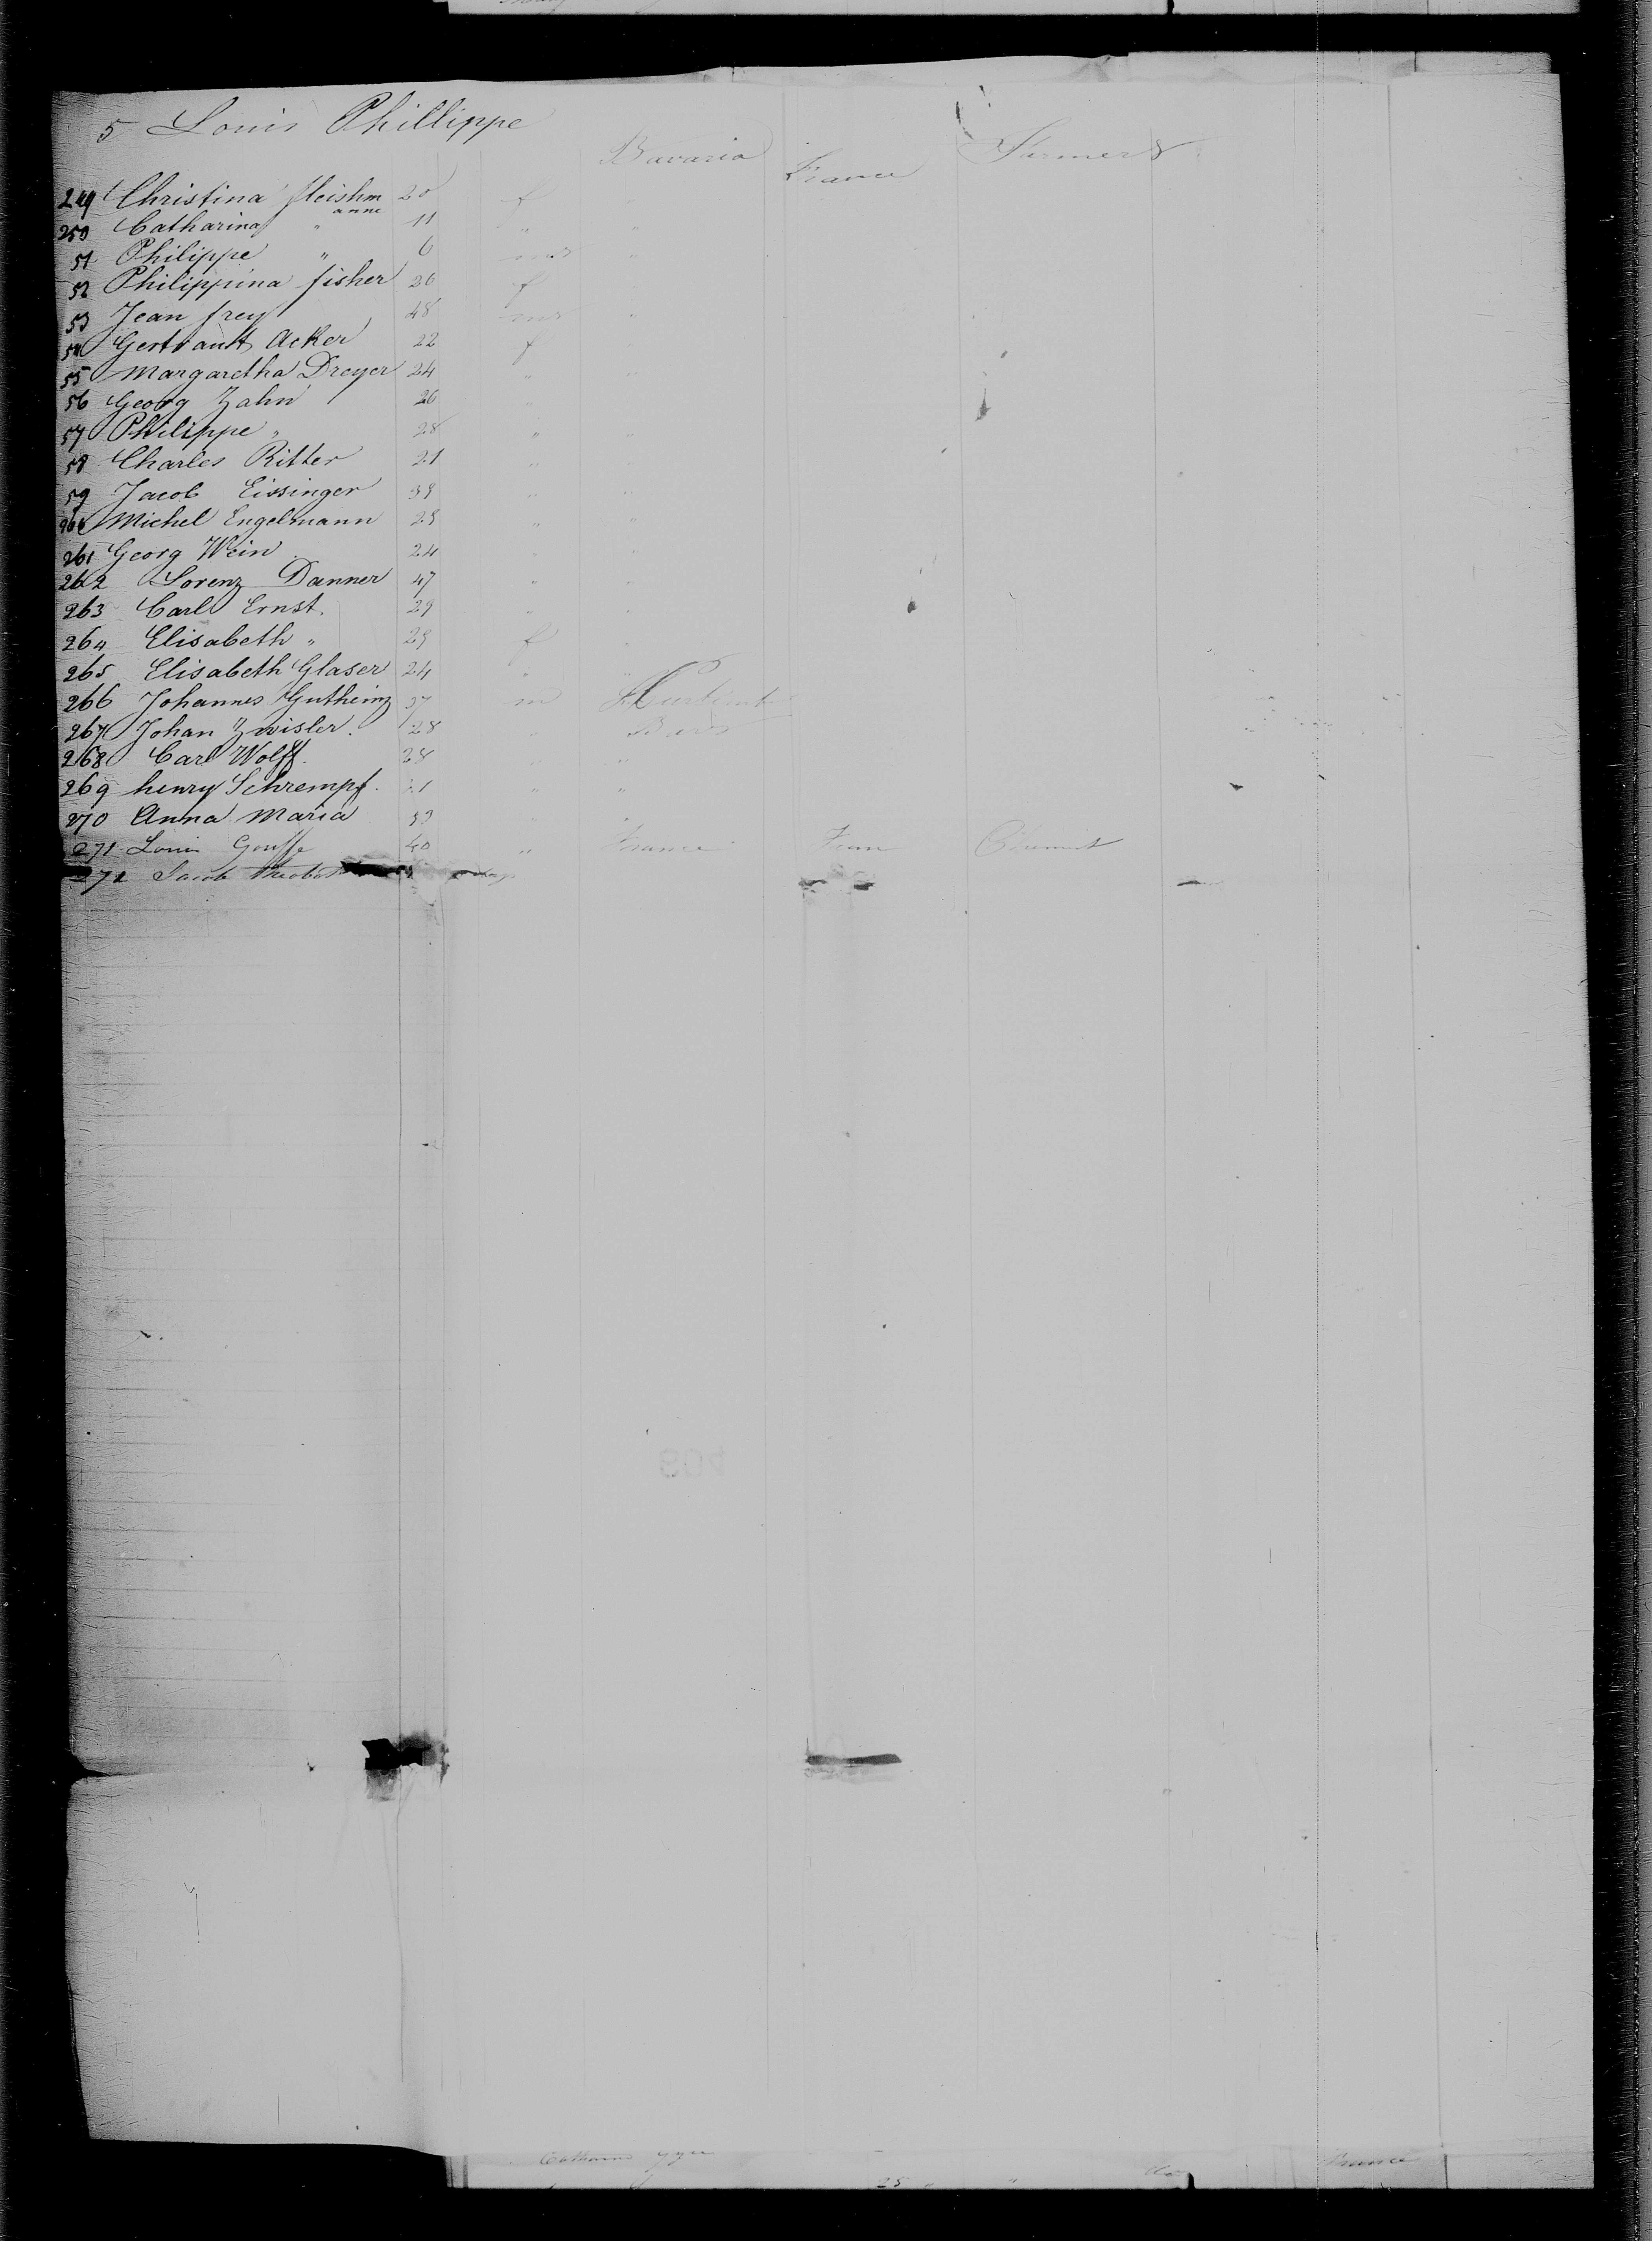 5 Louis Phillippe
Bavaria France Farmers
249 Christina fleishm 20 f
anne
250 Catharina " 11 "
51 Philippe " 6 m "
52 Philippina fisher 26 f
53 Jean frey 48 m "
54 Gertrautt Acker 22 f
55 Margaretha Dreyer 24 " "
56 Georg Zahn 26
57 Philippe " 28 " "
58 Charles Ritter 21 " "
59 Jacob Eissinger " "
260 Michel Engelmann " "
261 Georg Wein 24 " "
262 Lorenz Danner 47 " "
263 Carl Ernst. 29 " "
264 Elisabeth " 29 f "
265 Elisabeth Glaser 24 " "
266 Johannes Gutheinz 37 m
267 Johan Zwisler. 28 "
268 Carl Wolff. 28 "
269 henry Schrempf. " "
270 Anna Maria "
271 Louis Gouffe 40 " France
272 Jacob
25 " "
France